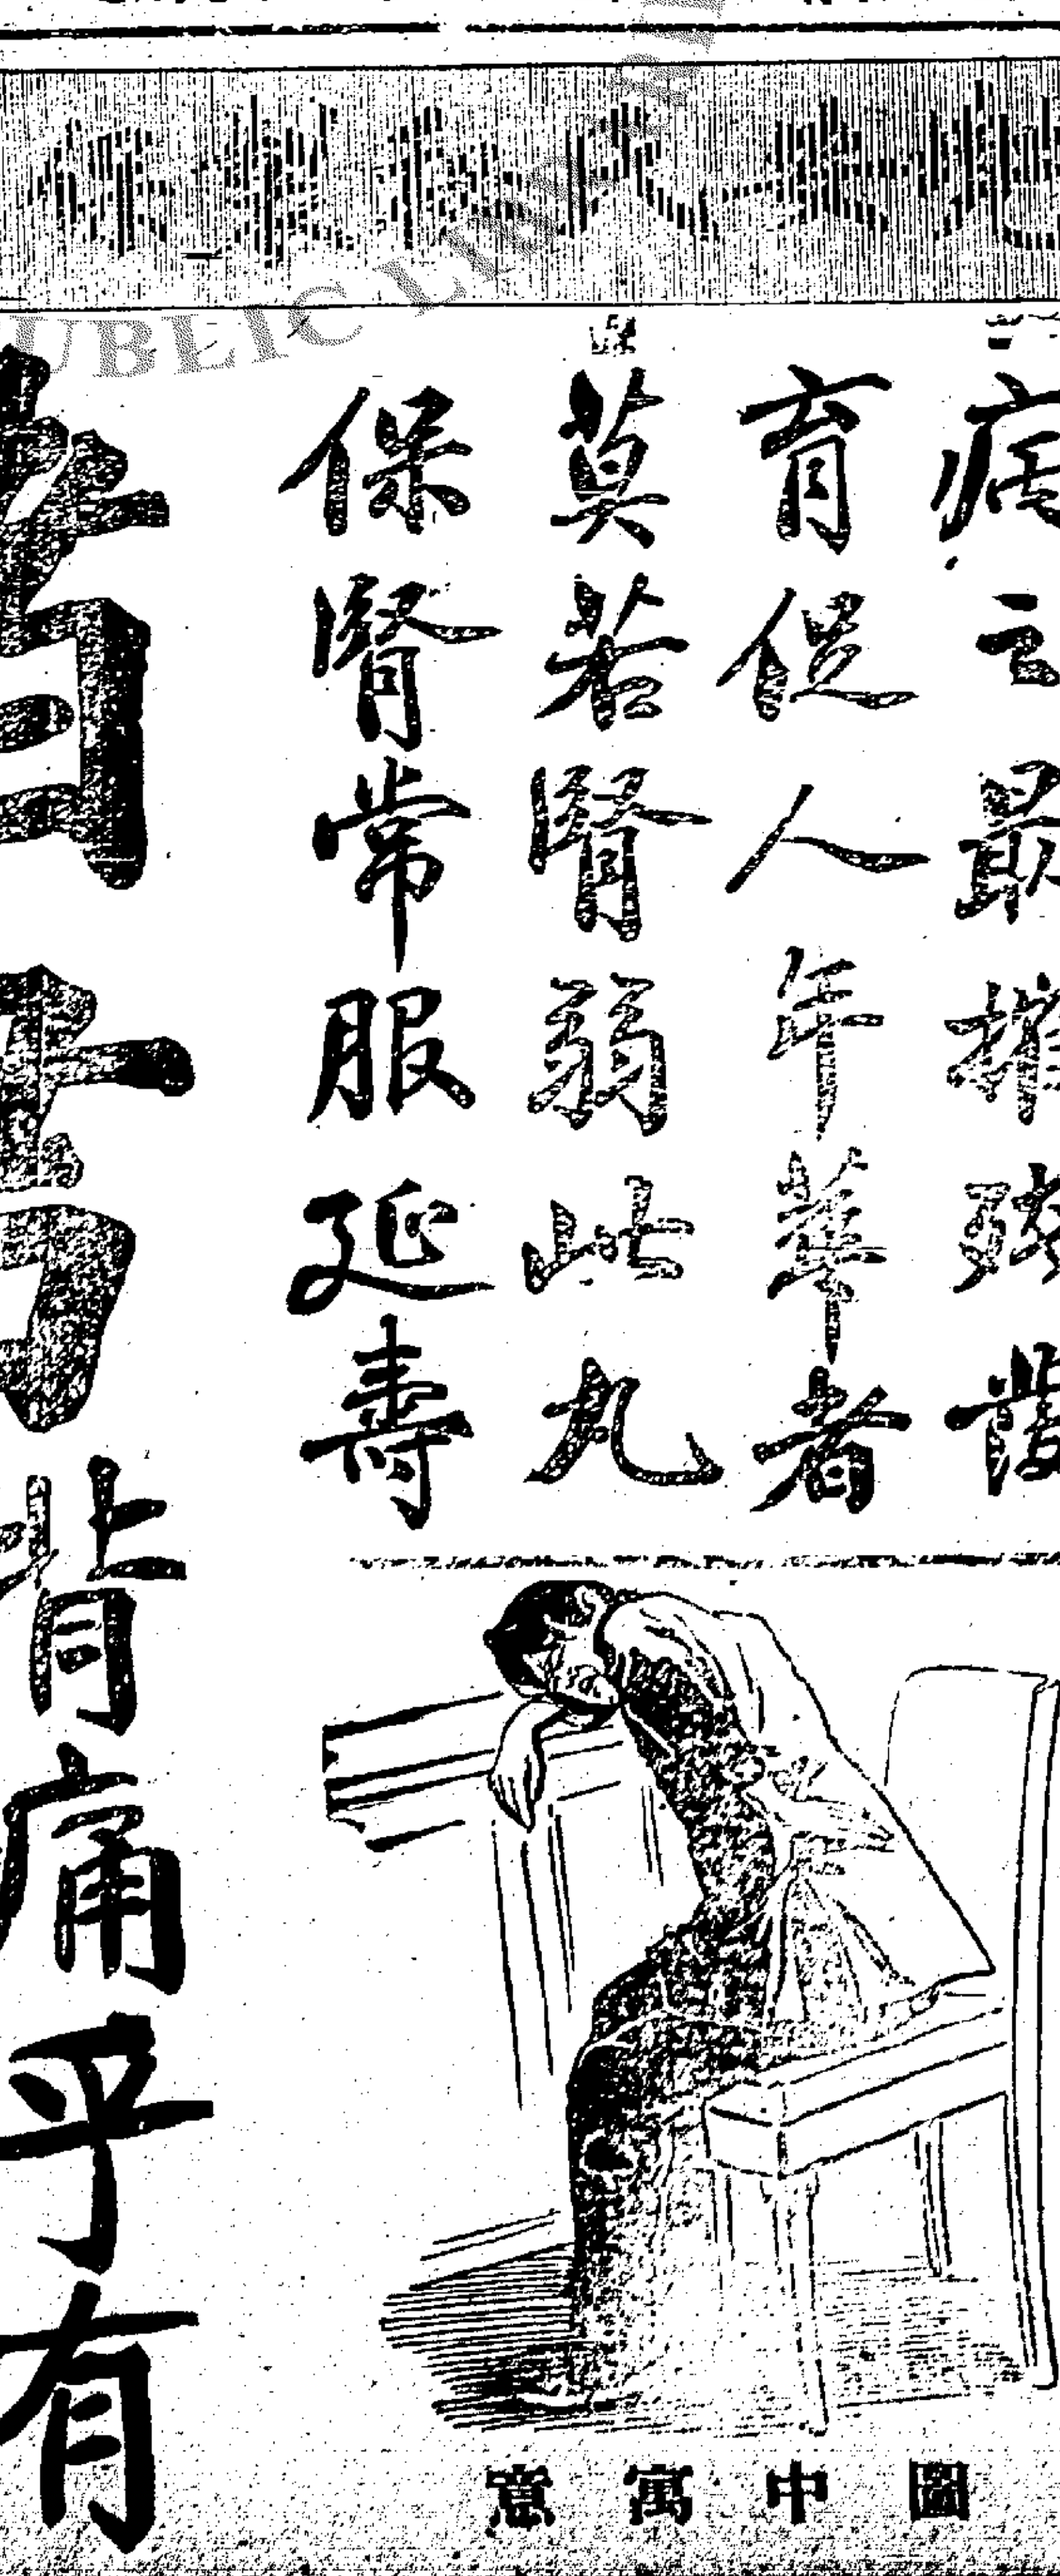 病之最摧殘發
育促人年華者
莫若腎弱此丸
保腎常服延壽
圖中寓意
背痛乎有
UBLIC